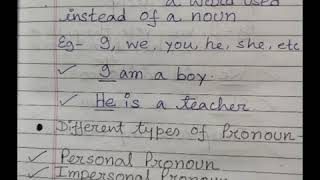 a word used
instead of a noun
Eg- I, we, you, he, she, etc
✓ I am a boy.
✓ He is a teacher
• Different types of Pronoun-
✓ Personal Pronoun
✓ Impersonal Pronoun